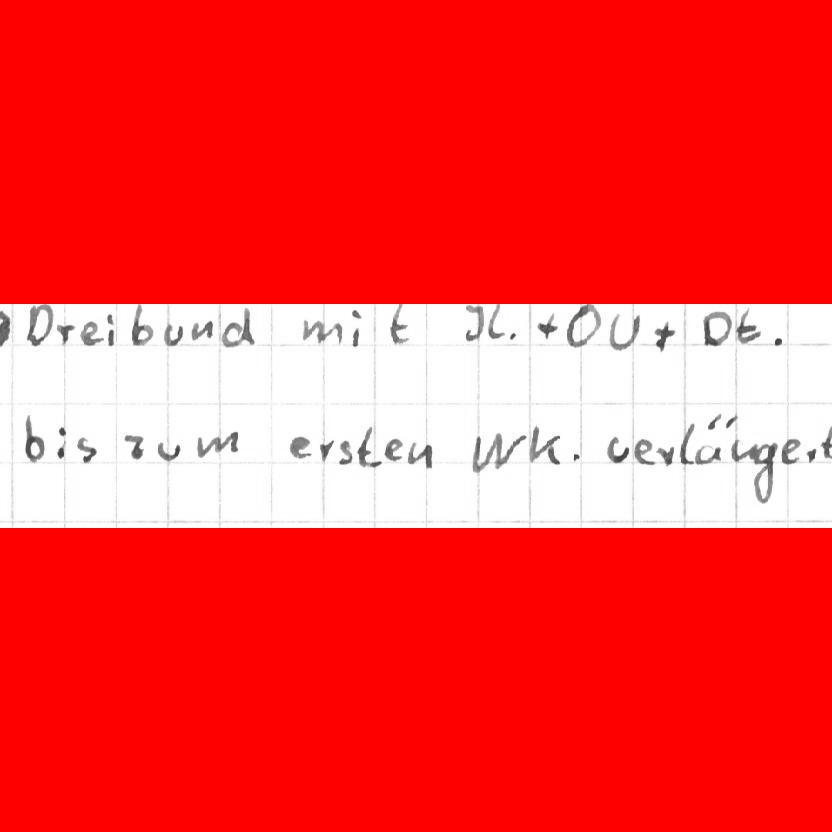 Dreibund mit It. + ÖU + Dt.
bis zum ersten WK. verlängert